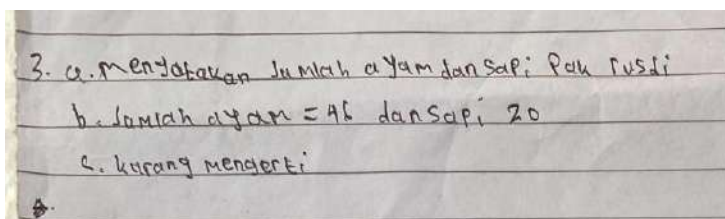 3. a. menyatakan Jumlah ayam dan sapi Pak rusdi
b. Jumlah ayam = 46 dan Sapi 20
c. kurang mengerti